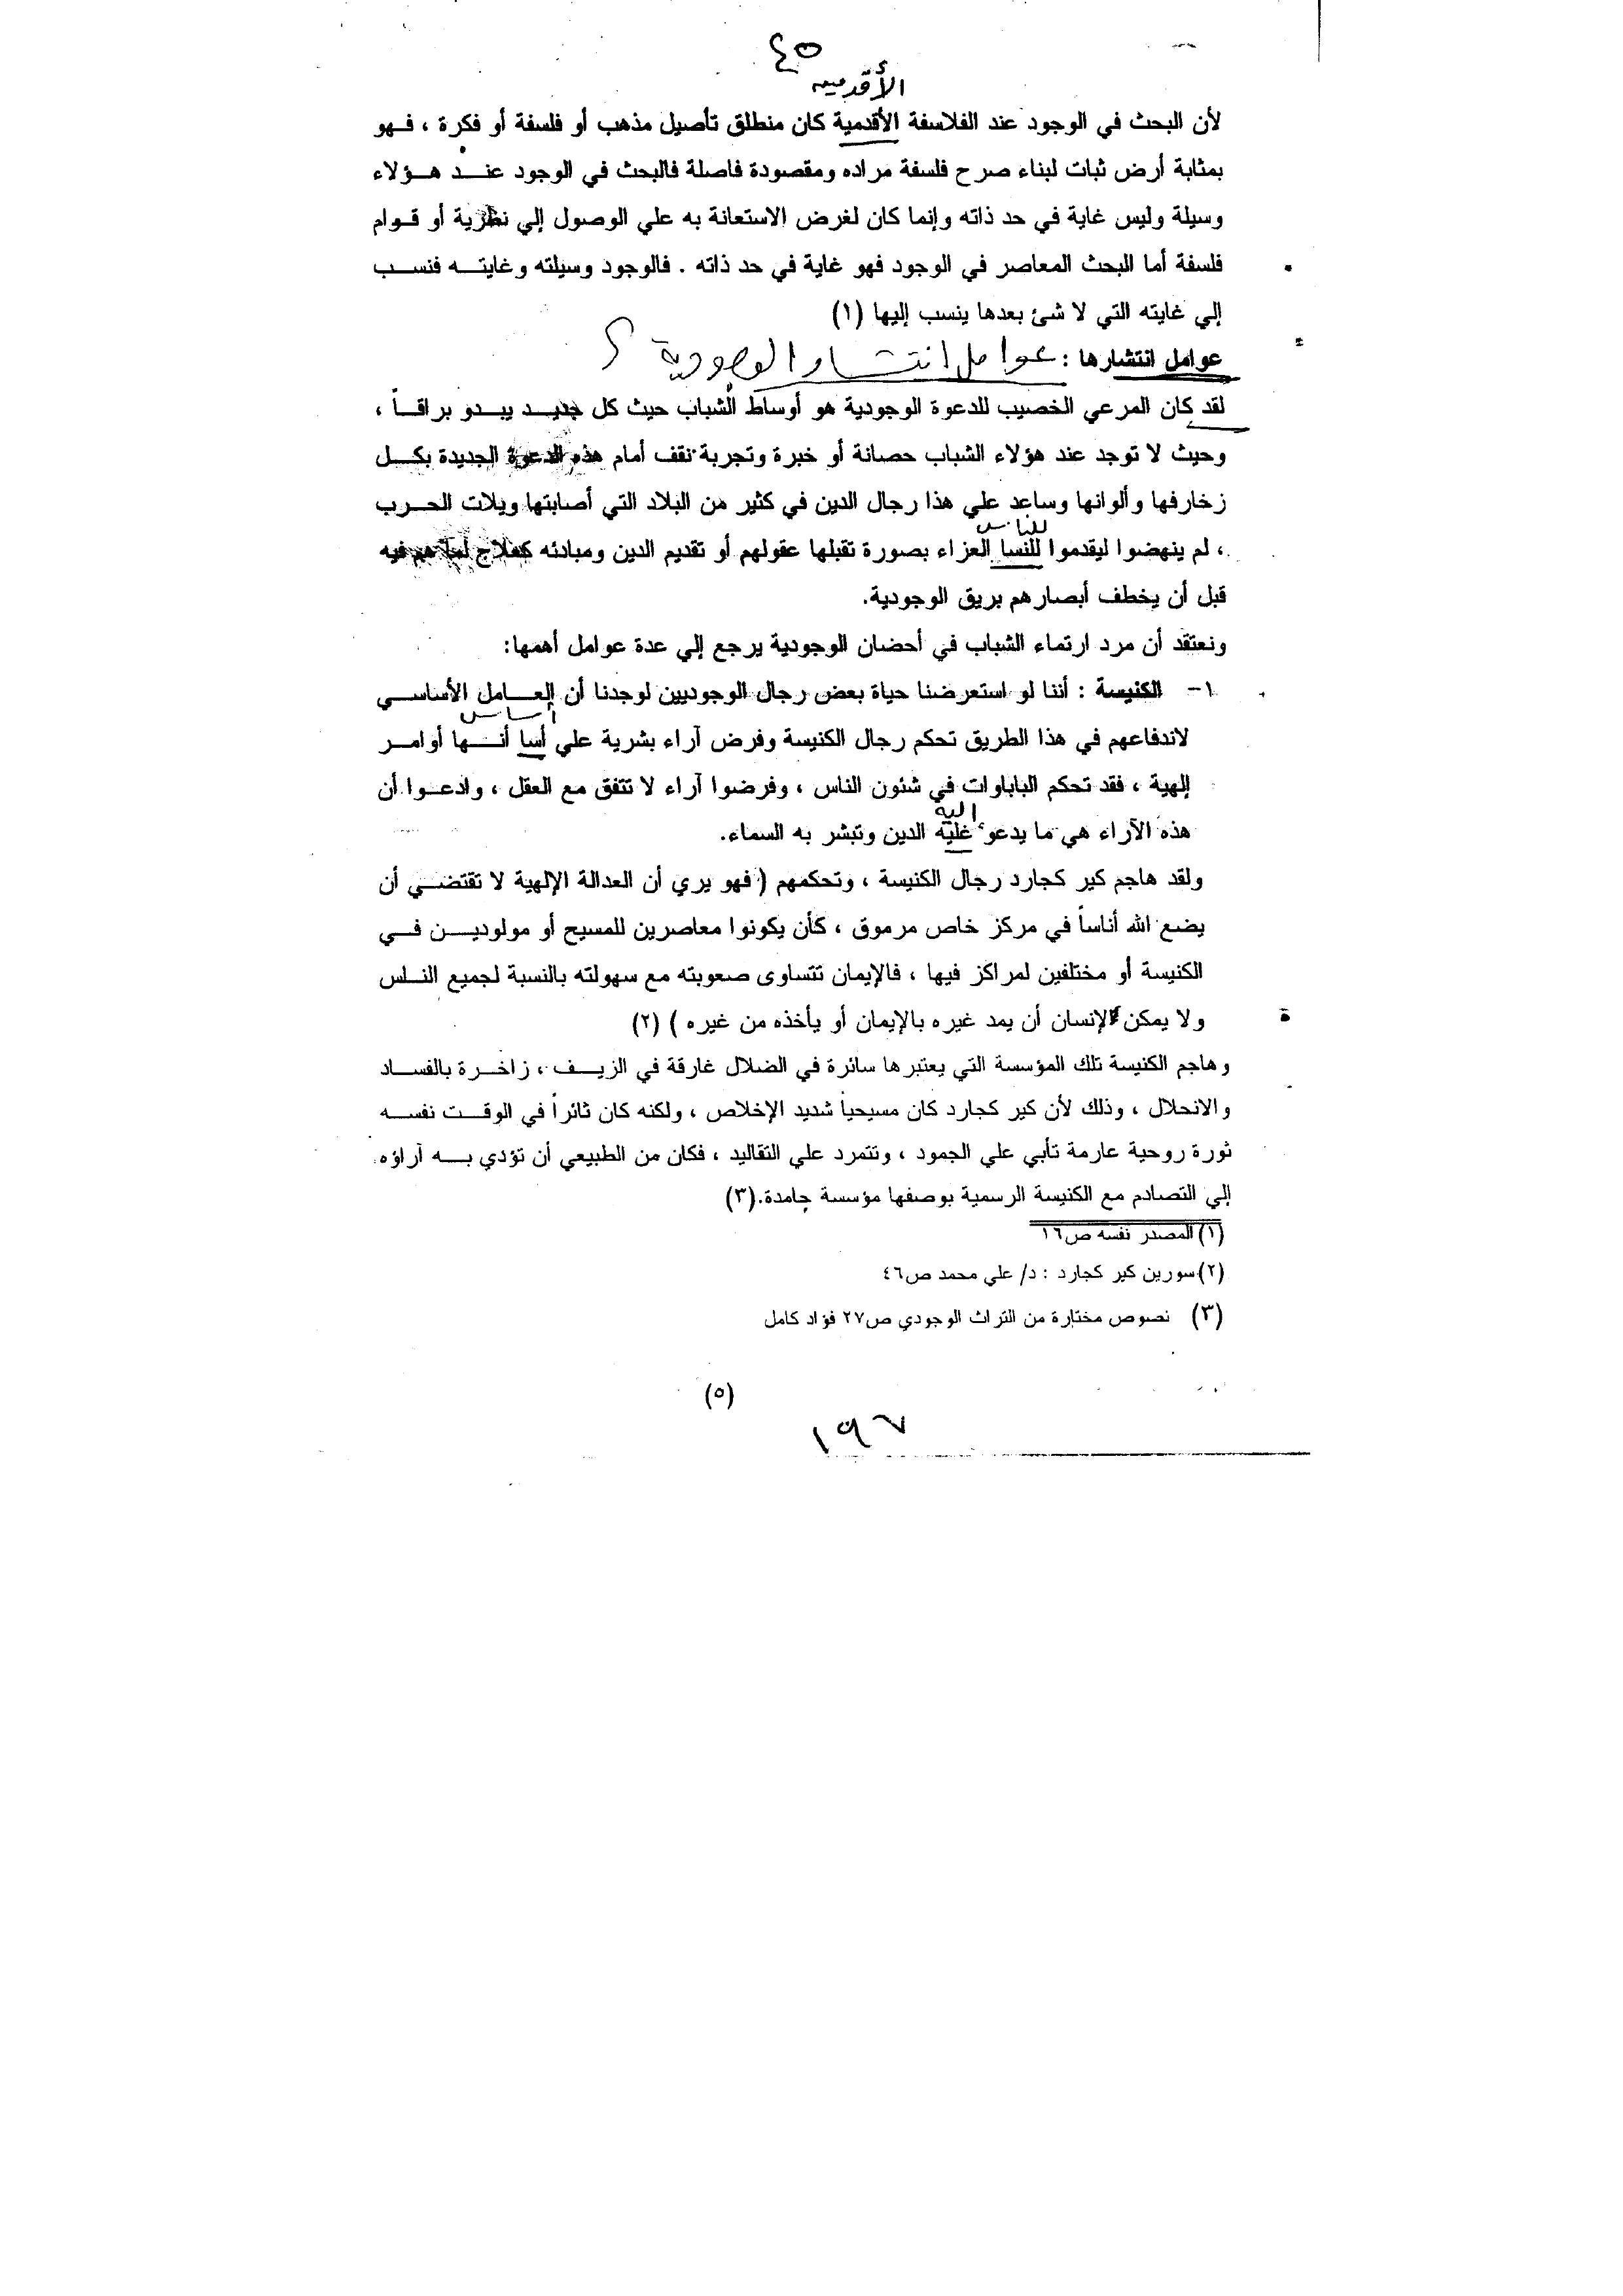 ٤٥
الأقدمين
لأن البحث في الوجود عند الفلاسفة الأقدمية كان منطلق تأصيل مذهب أو فلسفة أو فكرة ، فـهو
بمثابة أرض ثبات لبناء صرح فلسفة مراده ومقصودة فاصلة فالبحث في الوجود عنـــد هـؤلاء
وسيلة وليس غاية في حد ذاته وإنما كان لغرض الاستعانة به علي الوصول إلي نظرية أو قـوام
فلسفة أما البحث المعاصر في الوجود فهو غاية في حد ذاته . فالوجود وسيلته وغايتـــه فنسـب
إلي غايته التي لا شئ بعدها ينسب إليها (١)
عوامل انتشارها : عوامل انتشار الوجودية ؟
لقد كان المرعي الخصيب للدعوة الوجودية هو أوساط الشباب حيث كل جديـد يبـدو براقـاً ،
وحيث لا توجد عند هؤلاء الشباب حصانة أو خبرة وتجربة تقف أمام هذه الدعوة الجديدة بكـل
زخارفها وألوانها وساعد علي هذا رجال الدين في كثير من البلاد التي أصابتها ويلات الحـرب
للناس
، لم ينهضوا ليقدموا للنسا العزاء بصورة تقبلها عقولهم أو تقديم الدين ومبادئه كعلاج لما هم فيه
قبل أن يخطف أبصارهم بريق الوجودية.
ونعتقد أن مرد ارتماء الشباب في أحضان الوجودية يرجع إلي عدة عوامل أهمها:
١- الكنيسة : أننا لو استعرضنا حياة بعض رجال الوجوديين لوجدنا أن العـامل الأساسـي
أساس
لاندفاعهم في هذا الطريق تحكم رجال الكنيسة وفرض آراء بشرية علي أسا أنـــها أوامـر
إلهية ، فقد تحكم الباباوات في شئون الناس ، وفرضوا آراء لا تتفق مع العقل ، وادعـوا أن
اليه
هذه الآراء هي ما يدعو غليه الدين وتبشر به السماء.
ولقد هاجم كير كجارد رجال الكنيسة ، وتحكمهم ( فهو يري أن العدالة الإلهية لا تقتضـي أن
يضع الله أناساً في مركز خاص مرموق ، كأن يكونوا معاصرين للمسيح أو مولوديـن فـي
الكنيسة أو مختلفين لمراكز فيها ، فالإيمان تتساوى صعوبته مع سهولته بالنسبة لجميع النـاس
ولا يمكن للإنسان أن يمد غيره بالإيمان أو يأخذه من غيره ) (٢)
وهاجم الكنيسة تلك المؤسسة التي يعتبرها سائرة في الضلال غارقة في الزيـف ، زاخـرة بالفسـاد
والانحلال ، وذلك لأن كير كجارد كان مسيحياً شديد الإخلاص ، ولكنه كان ثائراً في الوقـت نفسـه
ثورة روحية عارمة تأبي علي الجمود ، وتتمرد علي التقاليد ، فكان من الطبيعي أن تؤدي بـــه آراؤه
إلي التصادم مع الكنيسة الرسمية بوصفها مؤسسة جامدة.(٣)
(١) المصدر نفسه ص١٦
(٢) سورين كير كجارد : د/ علي محمد ص٤٦
(٣) نصوص مختارة من التراث الوجودي ص٢٧ فؤاد كامل
(٥)
١٩٦